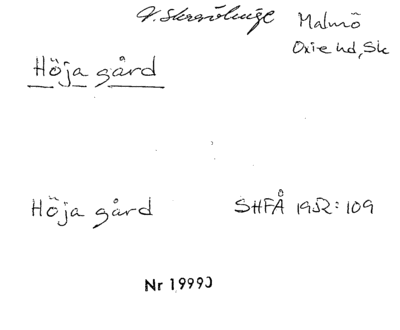 V. Skrävlinge
Malmö
Oxie hd, Sk
Höja gård
Höja gård SHFÅ 1952:109
Nr 19990